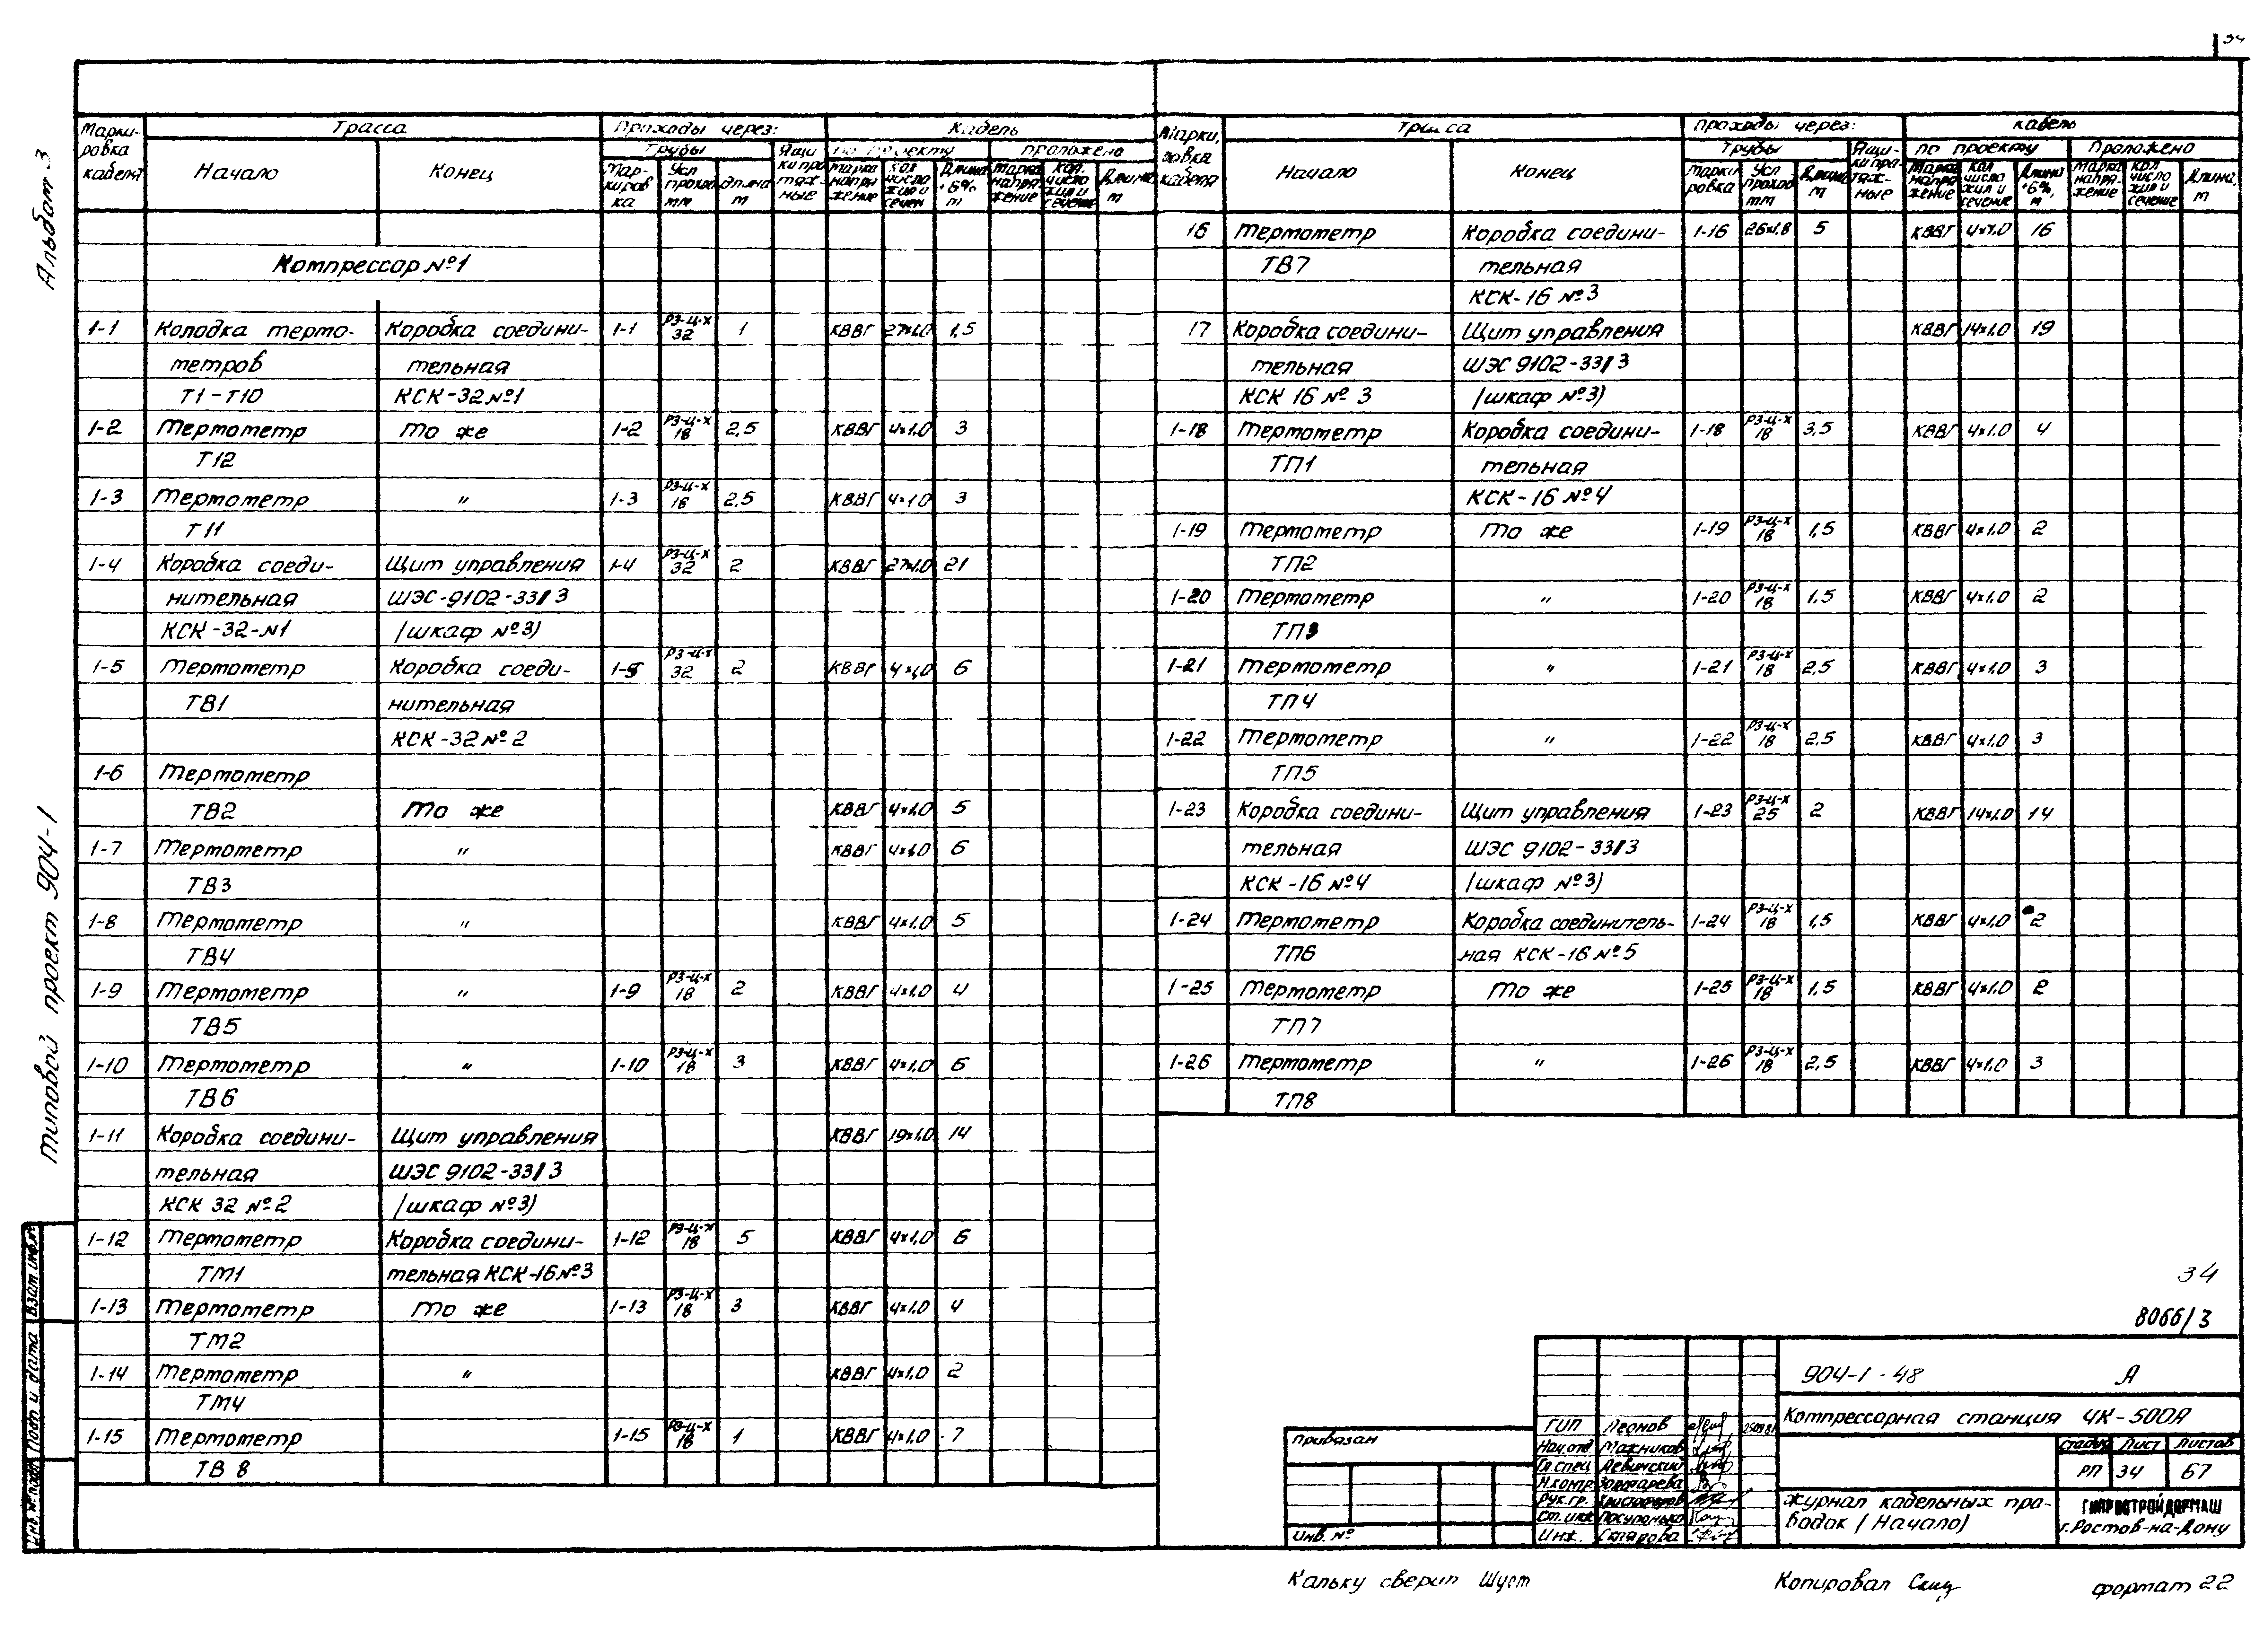 34
Альбом 3
Типовой проект 904-1
Взам.инв.№
Подп и дата
Инв.№ подл
Марки-
ровка
кабеля
Трасса
Начало
Конец
Проходы через:
Трубы
Мар-
киров
ка
Усл
проход
мм
Длина
м
Ящи
ки про
тяж-
ные
Кабель
по проекту
Марка
напря
жение
Кол.
число
жил и
сечен
Длина
+6%
м
проложено
Марка
напря-
жение
Кол.
число
жил и
сечение
Длина
м
Компрессор №1
1-1 Колодка термо- Коробка соедини- 1-1 РЗ-Ц-Х 32 1 КВВГ 27×1,0 1,5
метров тельная
Т1-Т10 КСК-32№1
1-2 Термометр То же 1-2 РЗ-Ц-Х 18 2,5 КВВГ 4×1,0 3
Т12
1-3 Термометр " 1-3 РЗ-Ц-Х 18 2,5 КВВГ 4×1,0 3
Т11
1-4 Коробка соеди- Щит управления 1-4 РЗ-Ц-Х 32 2 КВВГ 27×1,0 21
нительная ШЭС-9102-33/3
КСК-32-№1 (шкаф №3)
1-5 Термометр Коробка соеди- 1-5 РЗ-Ц-Х 32 2 КВВГ 4×1,0 6
ТВ1 нительная
КСК-32№2
1-6 Термометр
ТВ2 То же КВВГ 4×1,0 5
1-7 Термометр " КВВГ 4×1,0 6
ТВ3
1-8 Термометр " КВВГ 4×1,0 5
ТВ4
1-9 Термометр " 1-9 РЗ-Ц-Х 18 2 КВВГ 4×1,0 4
ТВ5
1-10 Термометр " 1-10 РЗ-Ц-Х 18 3 КВВГ 4×1,0 6
ТВ6
1-11 Коробка соедини- Щит управления КВВГ 19×1,0 14
тельная ШЭС 9102-33/3
КСК 32 №2 (шкаф №3)
1-12 Термометр Коробка соедини- 1-12 РЗ-Ц-Х 18 5 КВВГ 4×1,0 6
ТМ1 тельная КСК-16№3
1-13 Термометр То же 1-13 РЗ-Ц-Х 18 3 КВВГ 4×1,0 4
ТМ2
1-14 Термометр " КВВГ 4×1,0 2
ТМ4
1-15 Термометр 1-15 РЗ-Ц-Х 18 1 КВВГ 4×1,0 7
ТВ 8
Марки,
ровка
кабеля
Трасса
Начало
Конец
Проходы через:
Трубы
Марки
ровка
Усл
проход
мм
Длина
м
Ящи-
ки про-
тяж-
ные
кабель
по проекту
Марка
напря
жение
Кол
число
жил и
сечение
Длина
+6%,
м
Проложено
Марка
напря-
жение
Кол.
число
жил и
сечение
Длина,
м
16 Термометр Коробка соедини- 1-16 26×1,8 5 КВВГ 4×1,0 16
ТВ7 тельная
КСК-16 №3
17 Коробка соедини- Щит управления КВВГ 14×1,0 19
тельная ШЭС 9102-33/3
КСК 16 №3 (шкаф №3)
1-18 Термометр Коробка соедини- 1-18 РЗ-Ц-Х 18 3,5 КВВГ 4×1,0 4
ТП1 тельная
КСК-16 №4
1-19 Термометр То же 1-19 РЗ-Ц-Х 18 1,5 КВВГ 4×1,0 2
ТП2
1-20 Термометр " 1-20 РЗ-Ц-Х 18 1,5 КВВГ 4×1,0 2
ТП3
1-21 Термометр " 1-21 РЗ-Ц-Х 18 2,5 КВВГ 4×1,0 3
ТП4
1-22 Термометр " 1-22 РЗ-Ц-Х 18 2,5 КВВГ 4×1,0 3
ТП5
1-23 Коробка соедини- Щит управления 1-23 РЗ-Ц-Х 25 2 КВВГ 14×1,0 14
тельная ШЭС 9102-33/3
КСК-16 №4 (шкаф №3)
1-24 Термометр Коробка соединитель- 1-24 РЗ-Ц-Х 18 1,5 КВВГ 4×1,0 2
ТП6 ная КСК-16№5
1-25 Термометр То же 1-25 РЗ-Ц-Х 18 1,5 КВВГ 4×1,0 2
ТП7
1-26 Термометр " 1-26 РЗ-Ц-Х 18 2,5 КВВГ 4×1,0 3
ТП8
34
8066/3
904-1-48 А
Компрессорная станция 4К-500А
Стадия Лист Листов
РП 34 67
Журнал кабельных про-
водок (Начало)
ГИПРОСТРОЙДОРМАШ
г.Ростов-на-Дону
ГИП Леонов
Нач.отд Мажников
Гл.спец Левинский
Н.контр.
Рук.гр.
Ст.инж
Инж. Склярова
Привязан
Инв.№
Кальку сверил Шуст
Копировал
формат 22